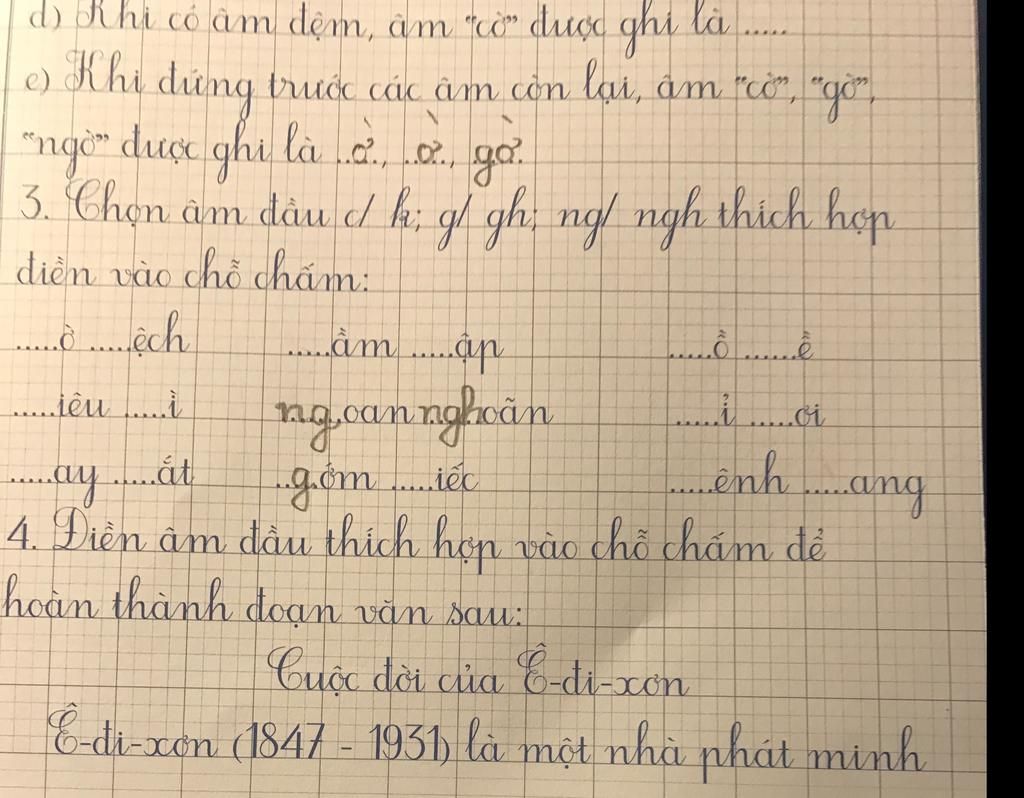 d) Khi có âm đệm, âm "cờ" được ghi là .....
e) Khi đứng trước các âm còn lại, âm "cờ", "gờ",
"ngờ" được ghi là ..ờ., ..ờ., gờ.
3. Chọn âm đầu c/ k; g/ gh; ng/ ngh thích hợp
điền vào chỗ chấm:
.....ò .....ệch .....ầm .....ập .....ồ ......ề
.....iêu .....ì ng.oan nghoãn .....ỉ .....ơi
.....ay .....ắt ..gốm .....iếc .....ênh .....ang
4. Điền âm đầu thích hợp vào chỗ chấm để
hoàn thành đoạn văn sau:
Cuộc đời của Ê-đi-xơn
Ê-đi-xơn (1847 - 1931) là một nhà phát minh